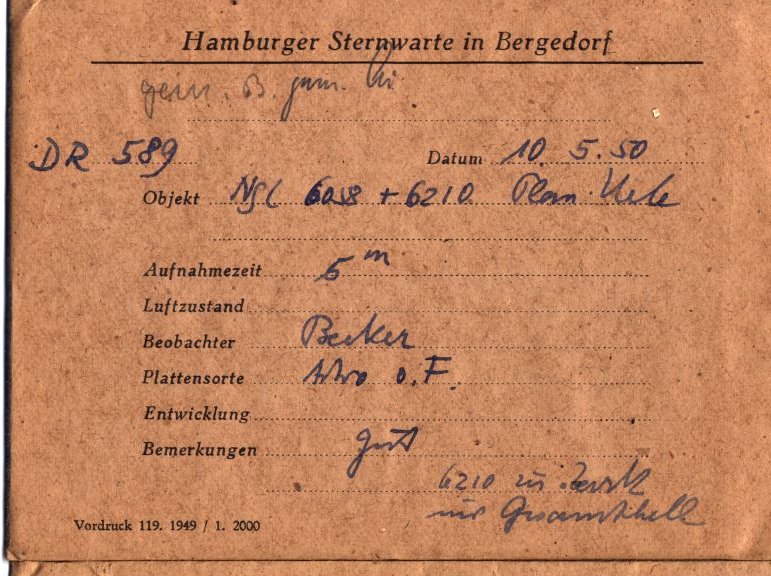 Hamburger Sternwarte in Bergedorf
gem. B. gem.
DR 589 Datum 10 5.50
Objekt NGC 6058 + 6210 Plan.
Aufnahmezeit 5 m
Luftzustand
Beobachter Becker
Plattensorte Astro o.F.
Entwicklung
Bemerkungen gut
6210 zu
nur Gesamthell
Vordruck 119. 1949 / 1. 2000